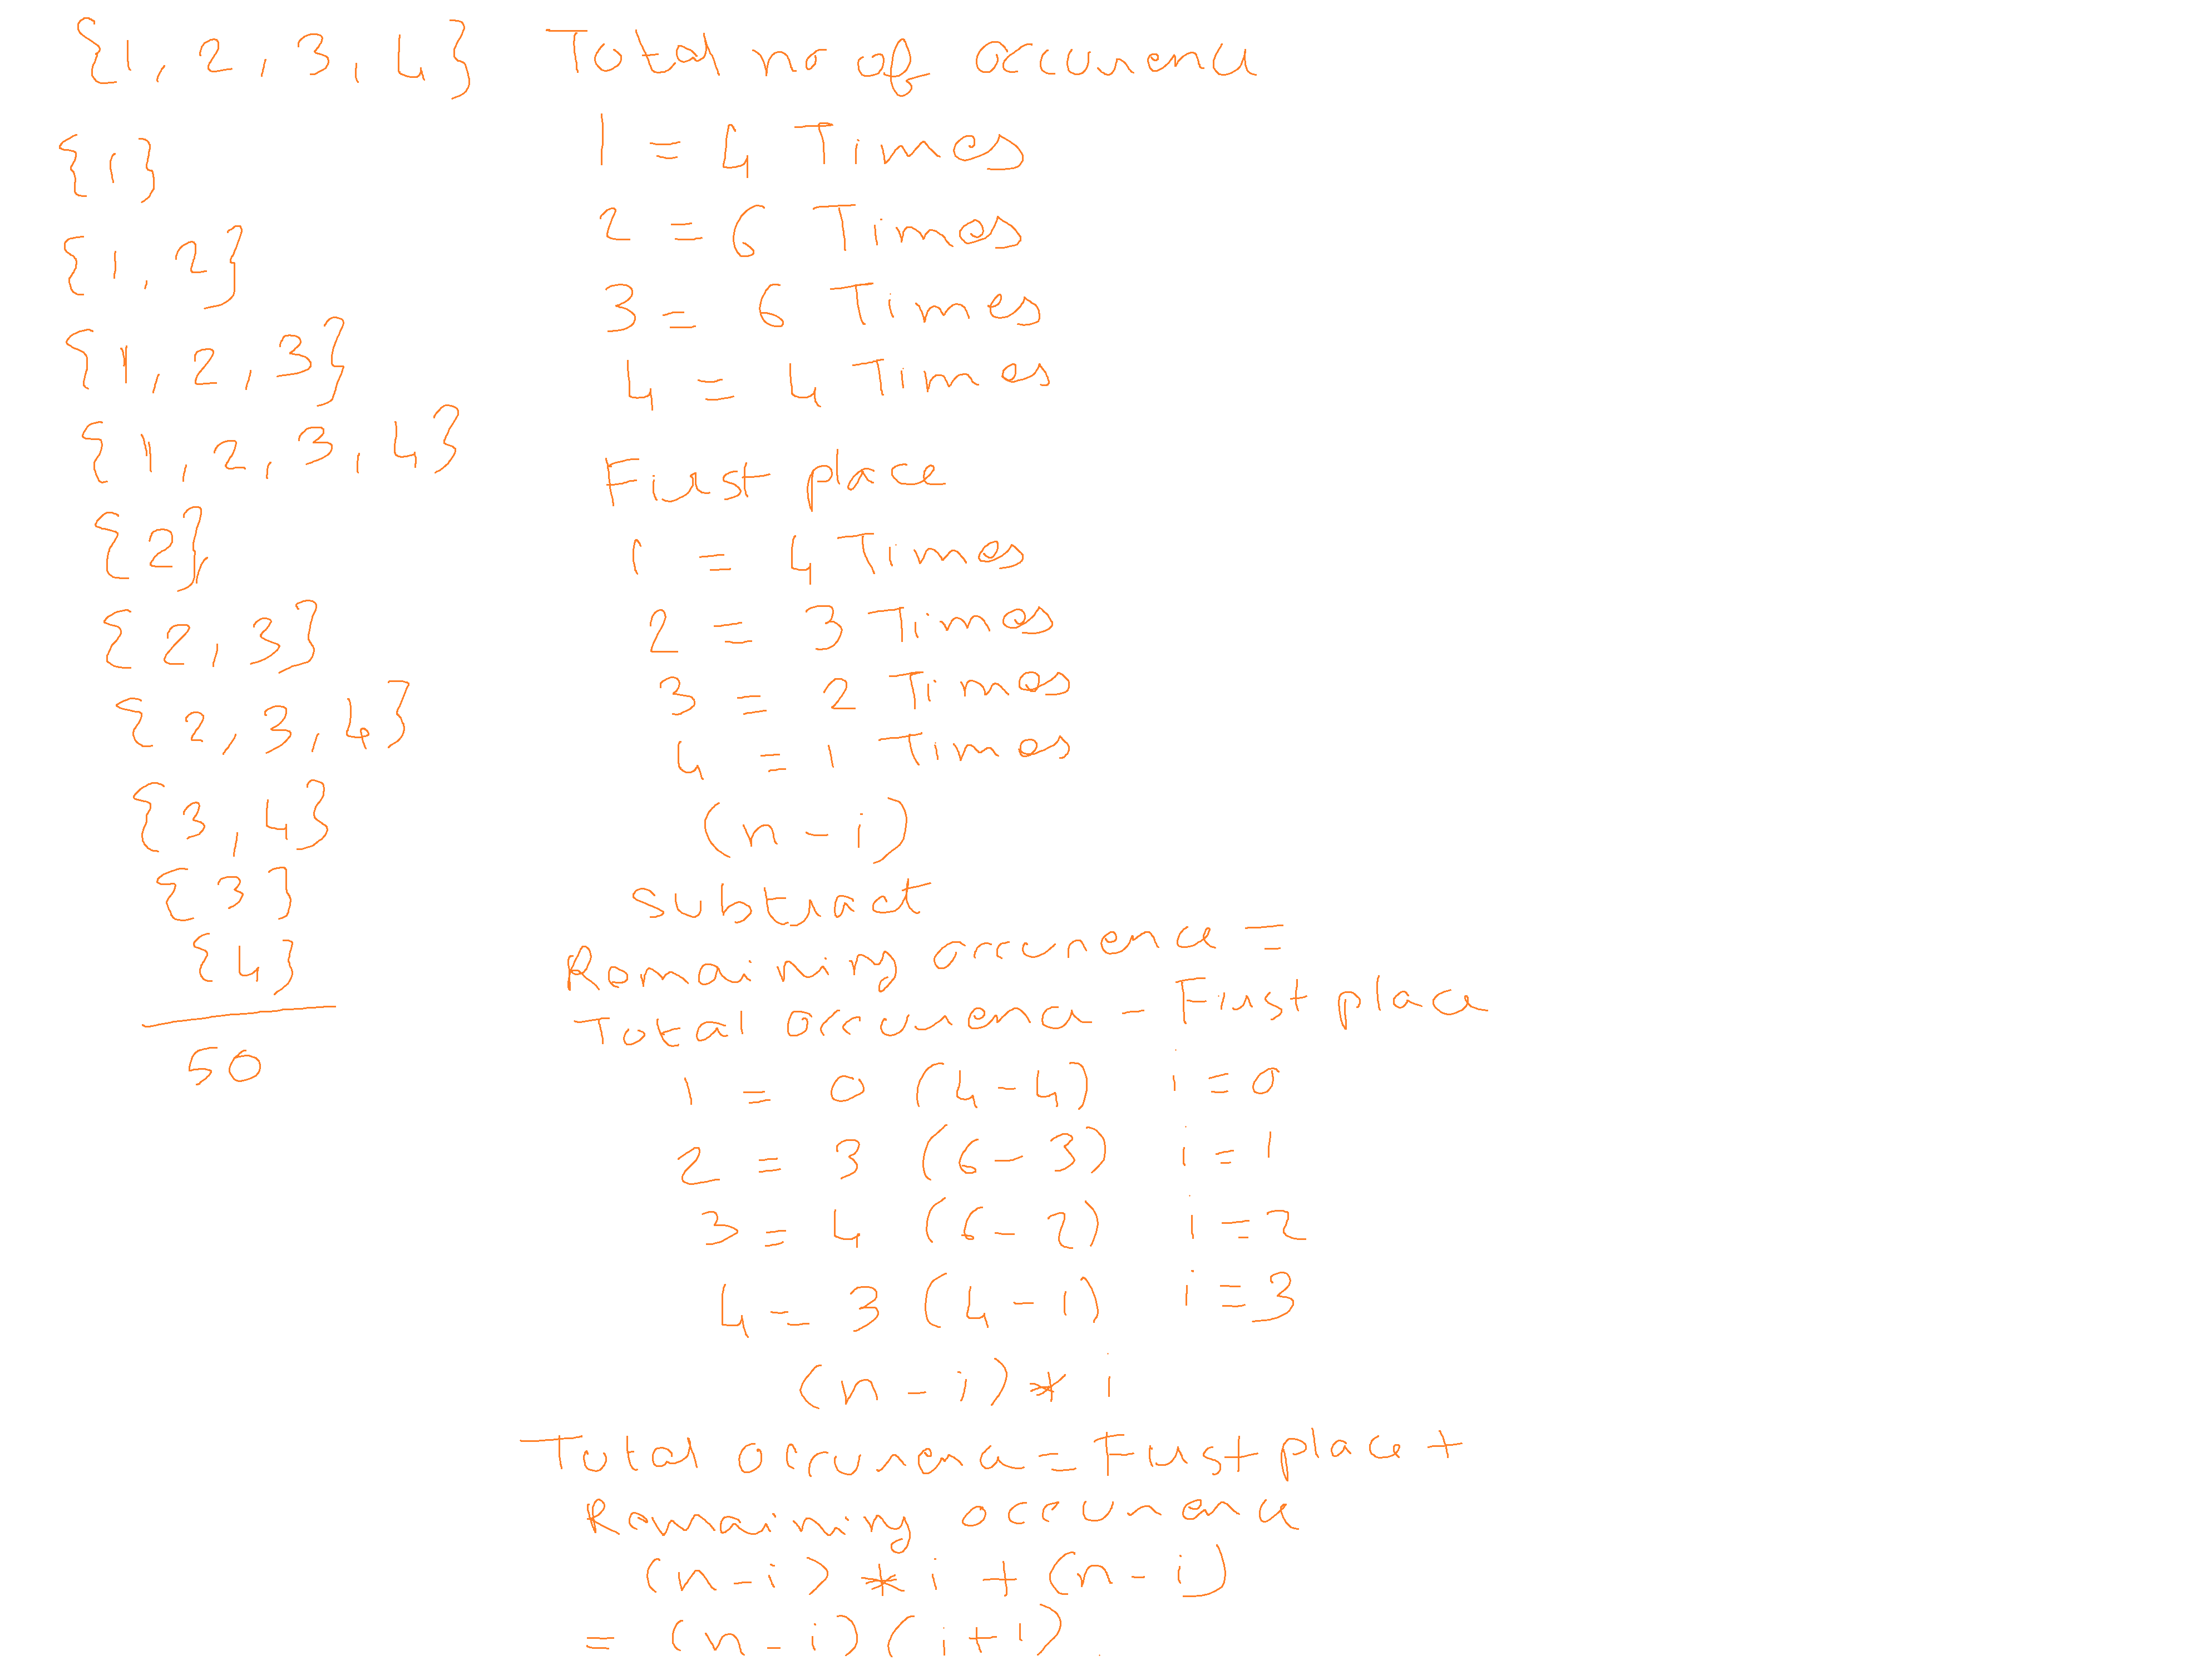 {1, 2, 3, 4}
{1}
{1, 2}
{1, 2, 3}
{1, 2, 3, 4}
{2},
{2, 3}
{2, 3, 4}
{3, 4}
{3}
{4}
50
Total no of occurence
1 = 4 Times
2 = 6 Times
3 = 6 Times
4 = 4 Times
First place
1 = 4 Times
2 = 3 Times
3 = 2 Times
4 = 1 Times
(n - i)
Subtract
Remaining occurence =
Total occurence - First place
1 = 0 (4 - 4) i = 0
2 = 3 (6 - 3) i = 1
3 = 4 (6 - 2) i = 2
4 = 3 (4 - 1) i = 3
(n - i) * i
Total occurence = First place +
Remaining occurence
(n - i) * i + (n - i)
= (n - i) (i + 1).